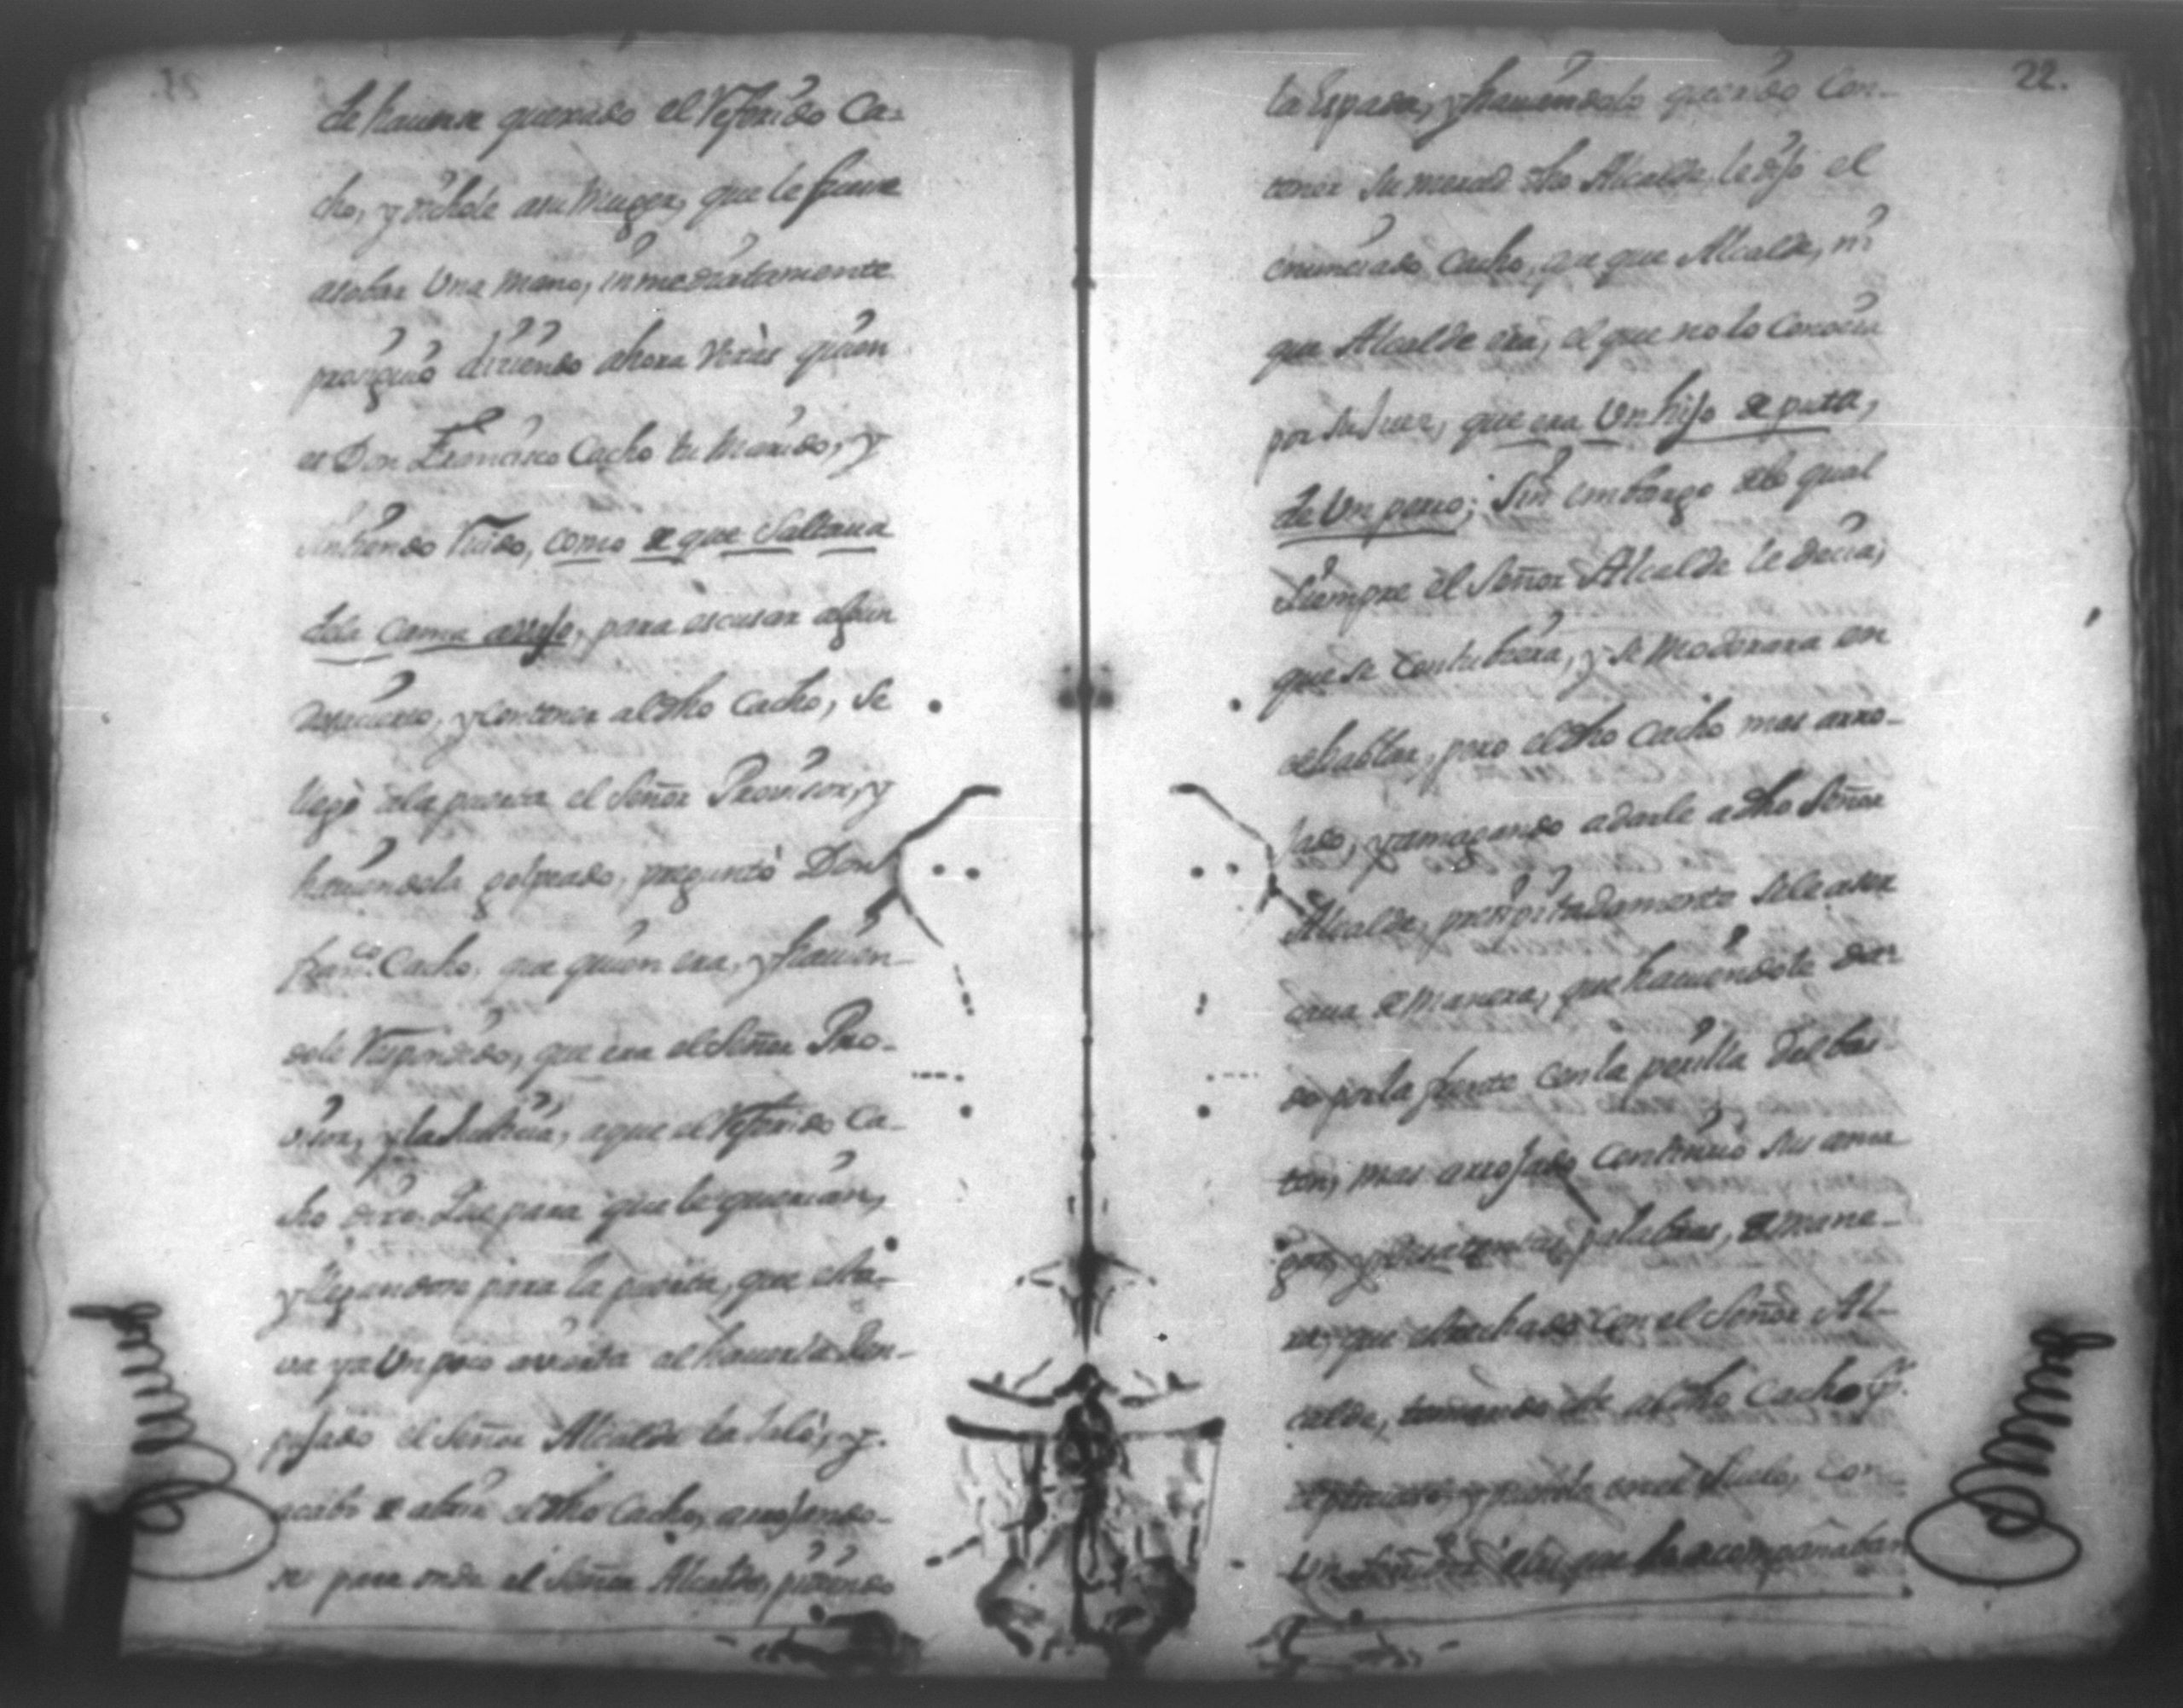 de haverse quexado el Referido Ca-
cho, y dichole a su Muger, que le fuese
asobar Una Mano, inmediatamente
prosiguio diziendo ahora Veràs quien
es Don Francisco Cacho tu Marido, y
sintiendo Ruido, como de que Saltava
dela Cama avajo, para escusar algun
, y contener al dho Cacho, Se
llegò ala puerta el Señor Provisor, y
haviendola golpeado, preguntò Don
Franco. Cacho, que quien era, y havien-
dole Respondido, que era el Señor Pro-
visor, y la Justicia, a que el Referido Ca-
cho dixo Que para que le querian,
y llegandose para la puerta, que esta-
va ya Un poco avierta al haverla Rem-
pujado el Señor Alcalde la Jalò, y
acabò de abrir el dho Cacho, arrojando-
se para onde el Señor Alcalde, pidiendo
22.
la espada, y haviendolo querido Con-
tener Su merced dho Alcalde le dijo el
enunciado Cacho, que que Alcalde, ni
que Alcalde era, el que no lo Conocia
por Su Juez, que era Un hijo de puta,
de Un perro; Sin embargo delo qual
Siempre el Señor Alcalde le decia,
que se Contubiera, y se Moderara en
el hablar, pero el dho Cacho mas arro-
jado, y amagando a darle a dho Señor
Alcalde, precipitadamente Sele aser
cava de Manera, que haviendole da-
do por la frente con la perilla del bas-
ton, mas arrojado Continuò Sus ama
gos, y desatentas palabras, de Mane-
ra, que estrechado con el Señor Al-
calde, tomandole al dho Cacho pr.
y puesto en el Suelo, Con
Un delos que le acompañaban